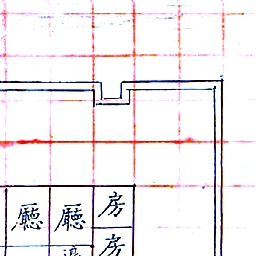 廳 廳 房
房